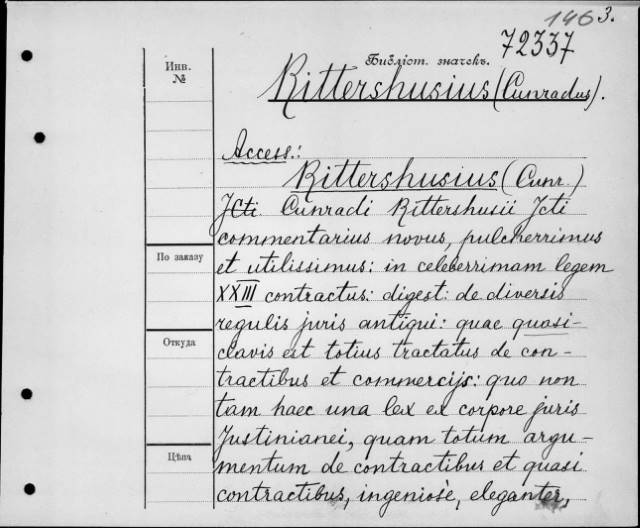 146 3.
72337
Библіот. значекъ.
Rittershusius (Cunradus).
Инв.
№
Access.:
Rittershusius (Cunr.)
Jcti. Cunradi Rittershusii Jcti
commentarius novus, pulcherrimus
et utilissimus: in celeberrimam legem
По заказу
XXIII contractus: digest: de diversis
regulis juris antiqui: quae quasi-
Откуда
clavis est totius tractatus de con-
tractibus et commercijs: quo non
tam haec una lex ex corpore juris
Justinianei, quam totum argu-
Цѣна
mentum de contractibus et quasi
contractibus, ingeniosè, eleganter,